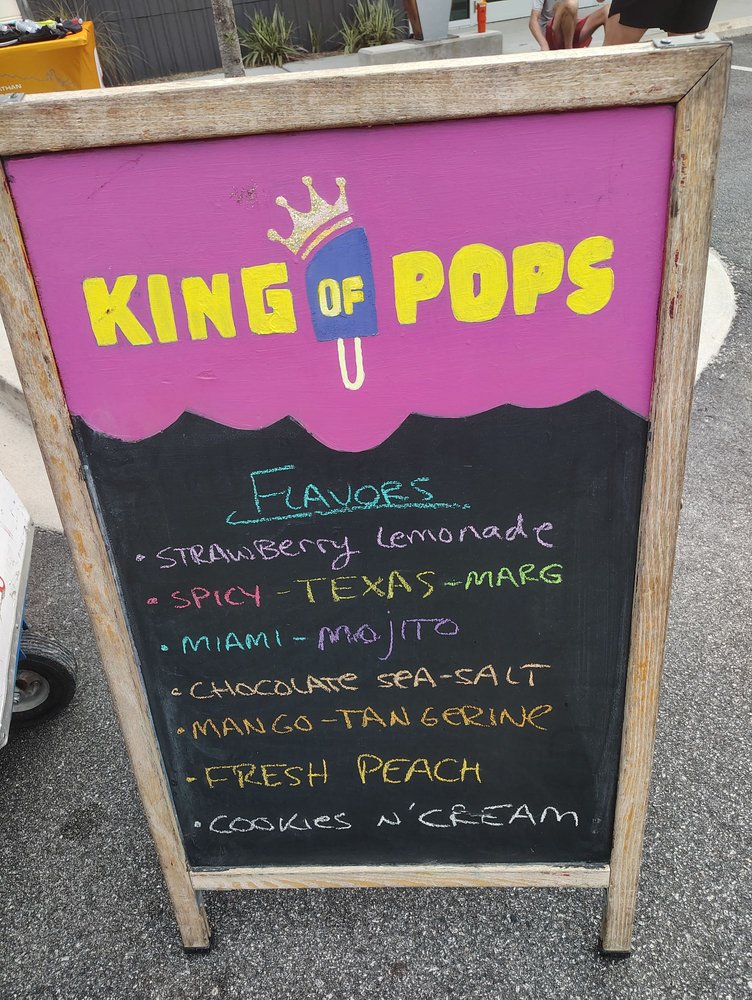 THAN
KING OF POPS
FLAVORS
• STRAWBerry Lemonade
• SPICY - TEXAS - MARG
• MIAMI - MOJITO
• CHOCOLATE SEA-SALT
• MANGO-TANGERINE
• FRESH PEACH
• COOKIES N' CREAM